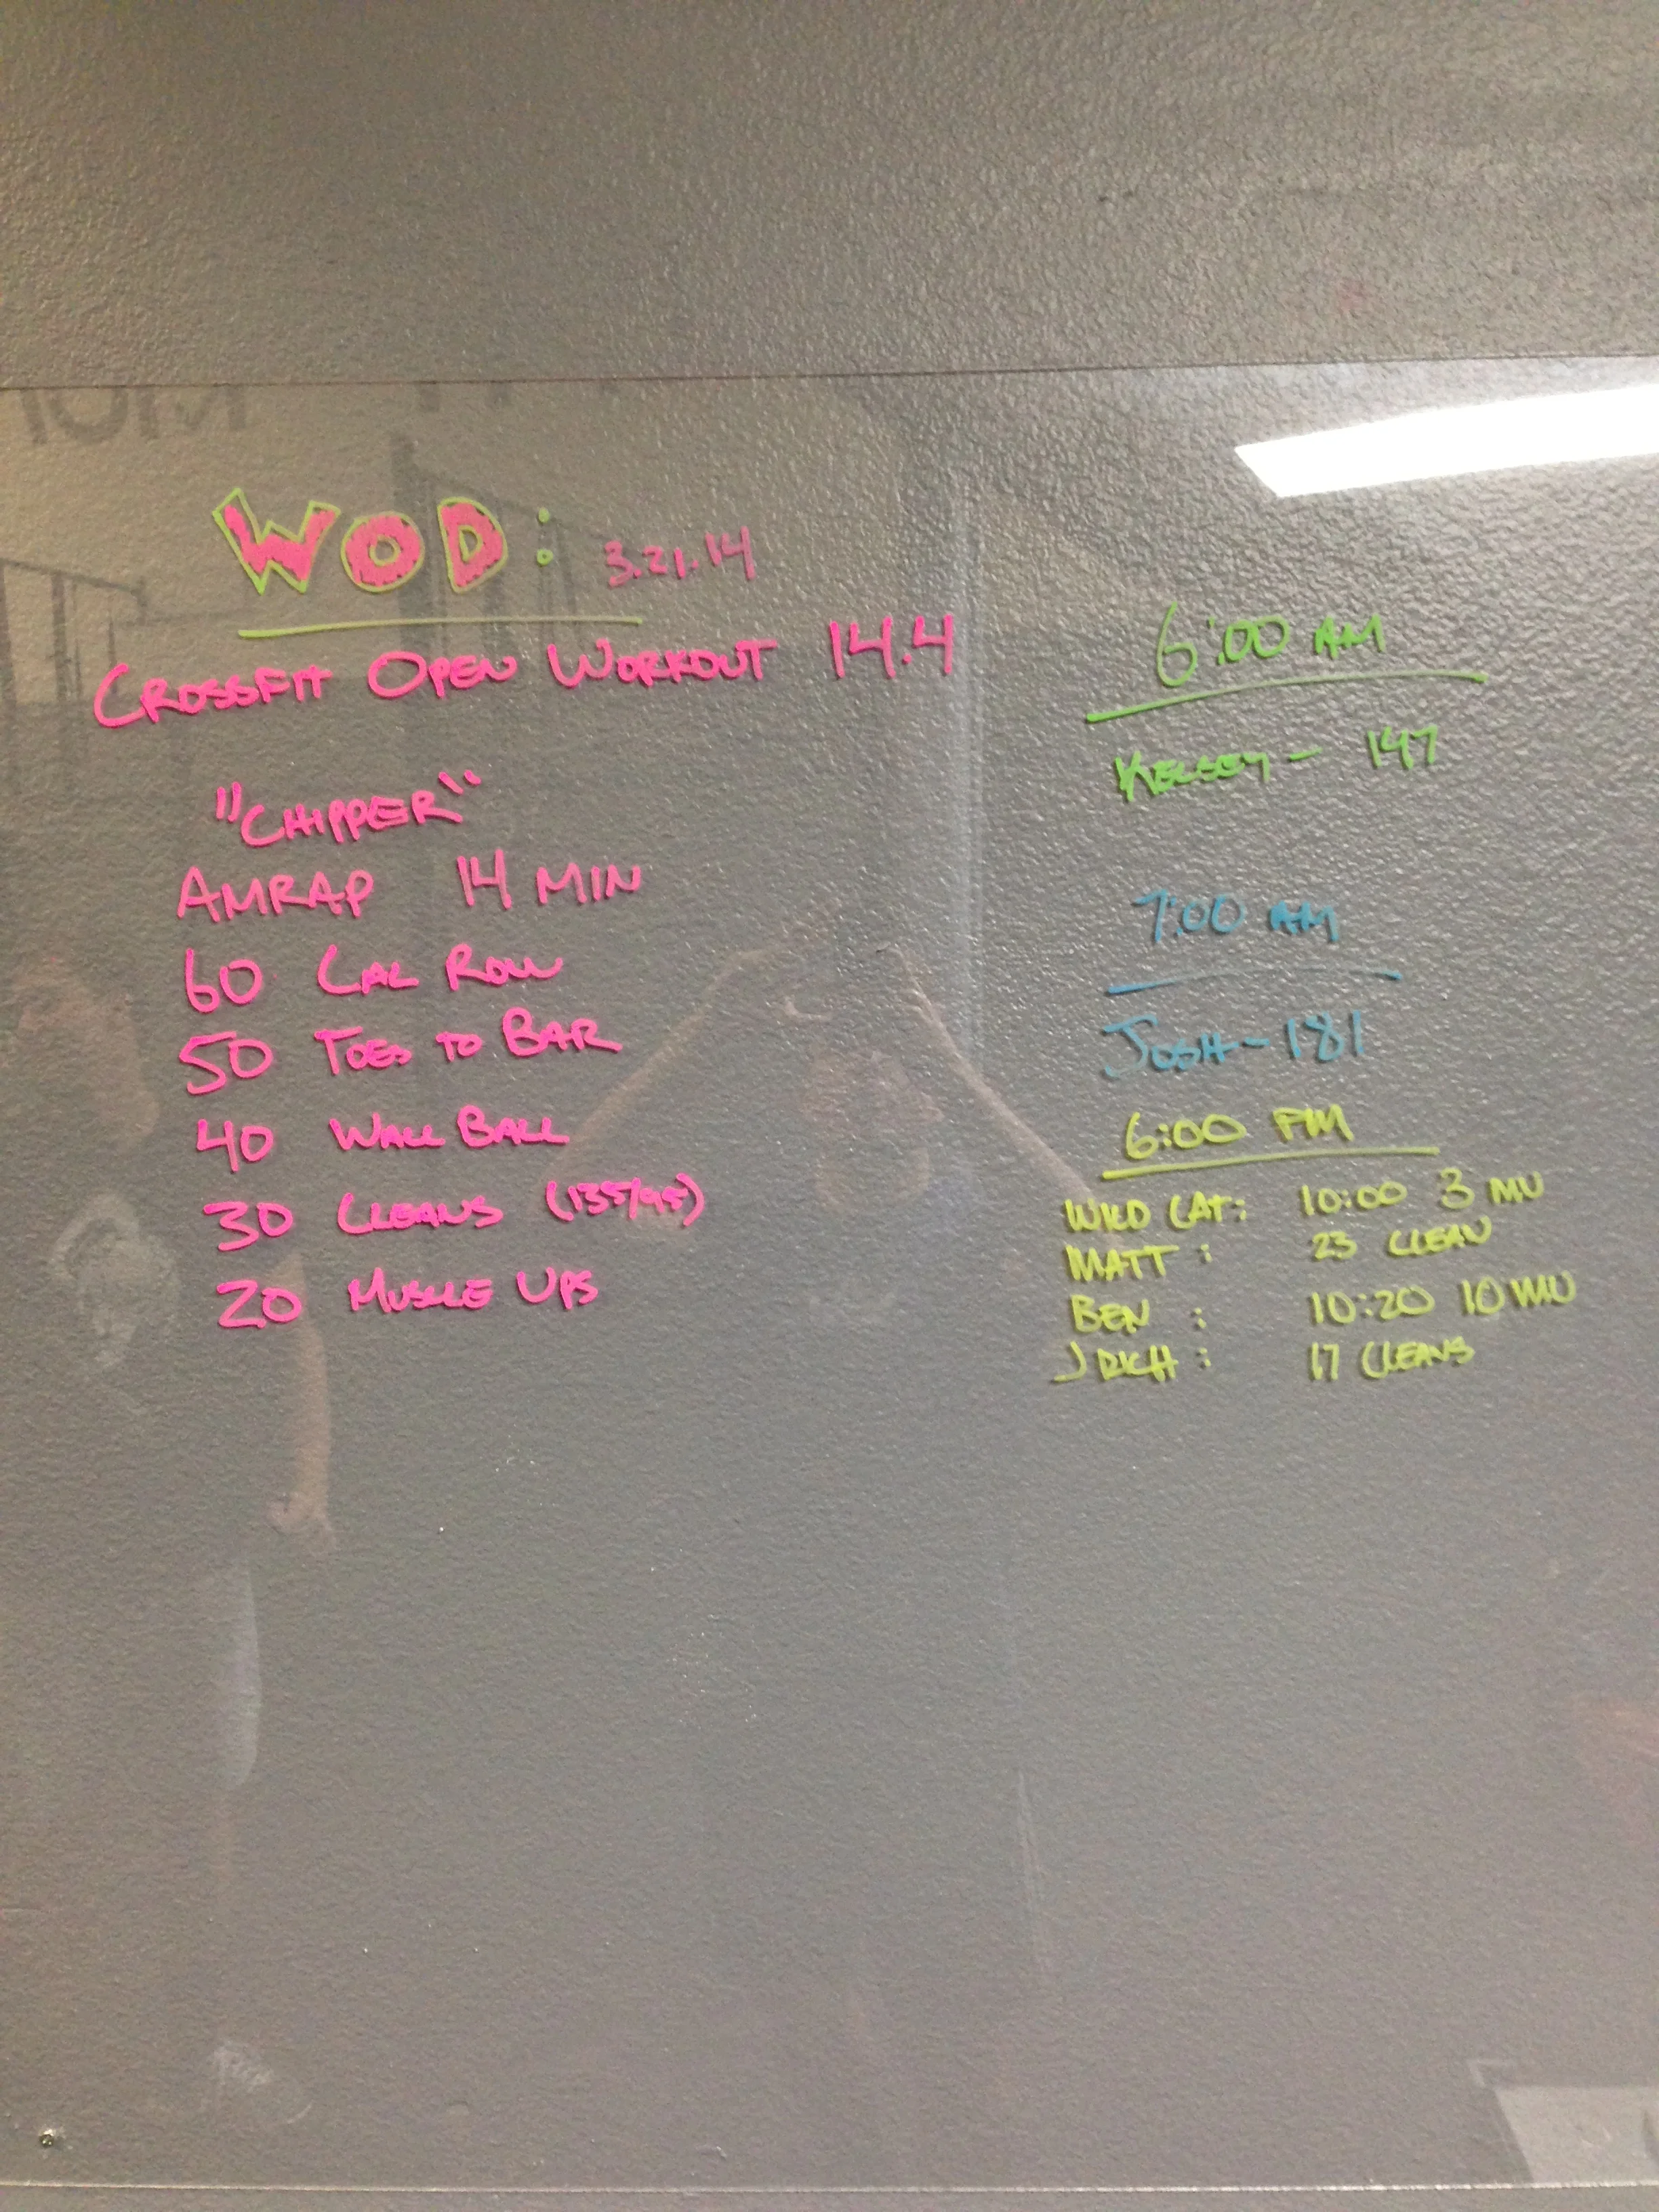 WOD: 3.21.14
CROSSFIT OPEN WORKOUT 14.4
"CHIPPER"
AMRAP 14 MIN
60 CAL ROW
50 TOES TO BAR
40 WALL BALL
30 CLEANS (135/95)
20 MUSCLE UPS
6:00 AM
KELSEY - 147
7:00 AM
JOSH - 181
6:00 PM
WILD CAT: 10:00 3 MU
MATT: 23 CLEAN
BEN: 10:20 10 MU
J RICH: 17 CLEANS